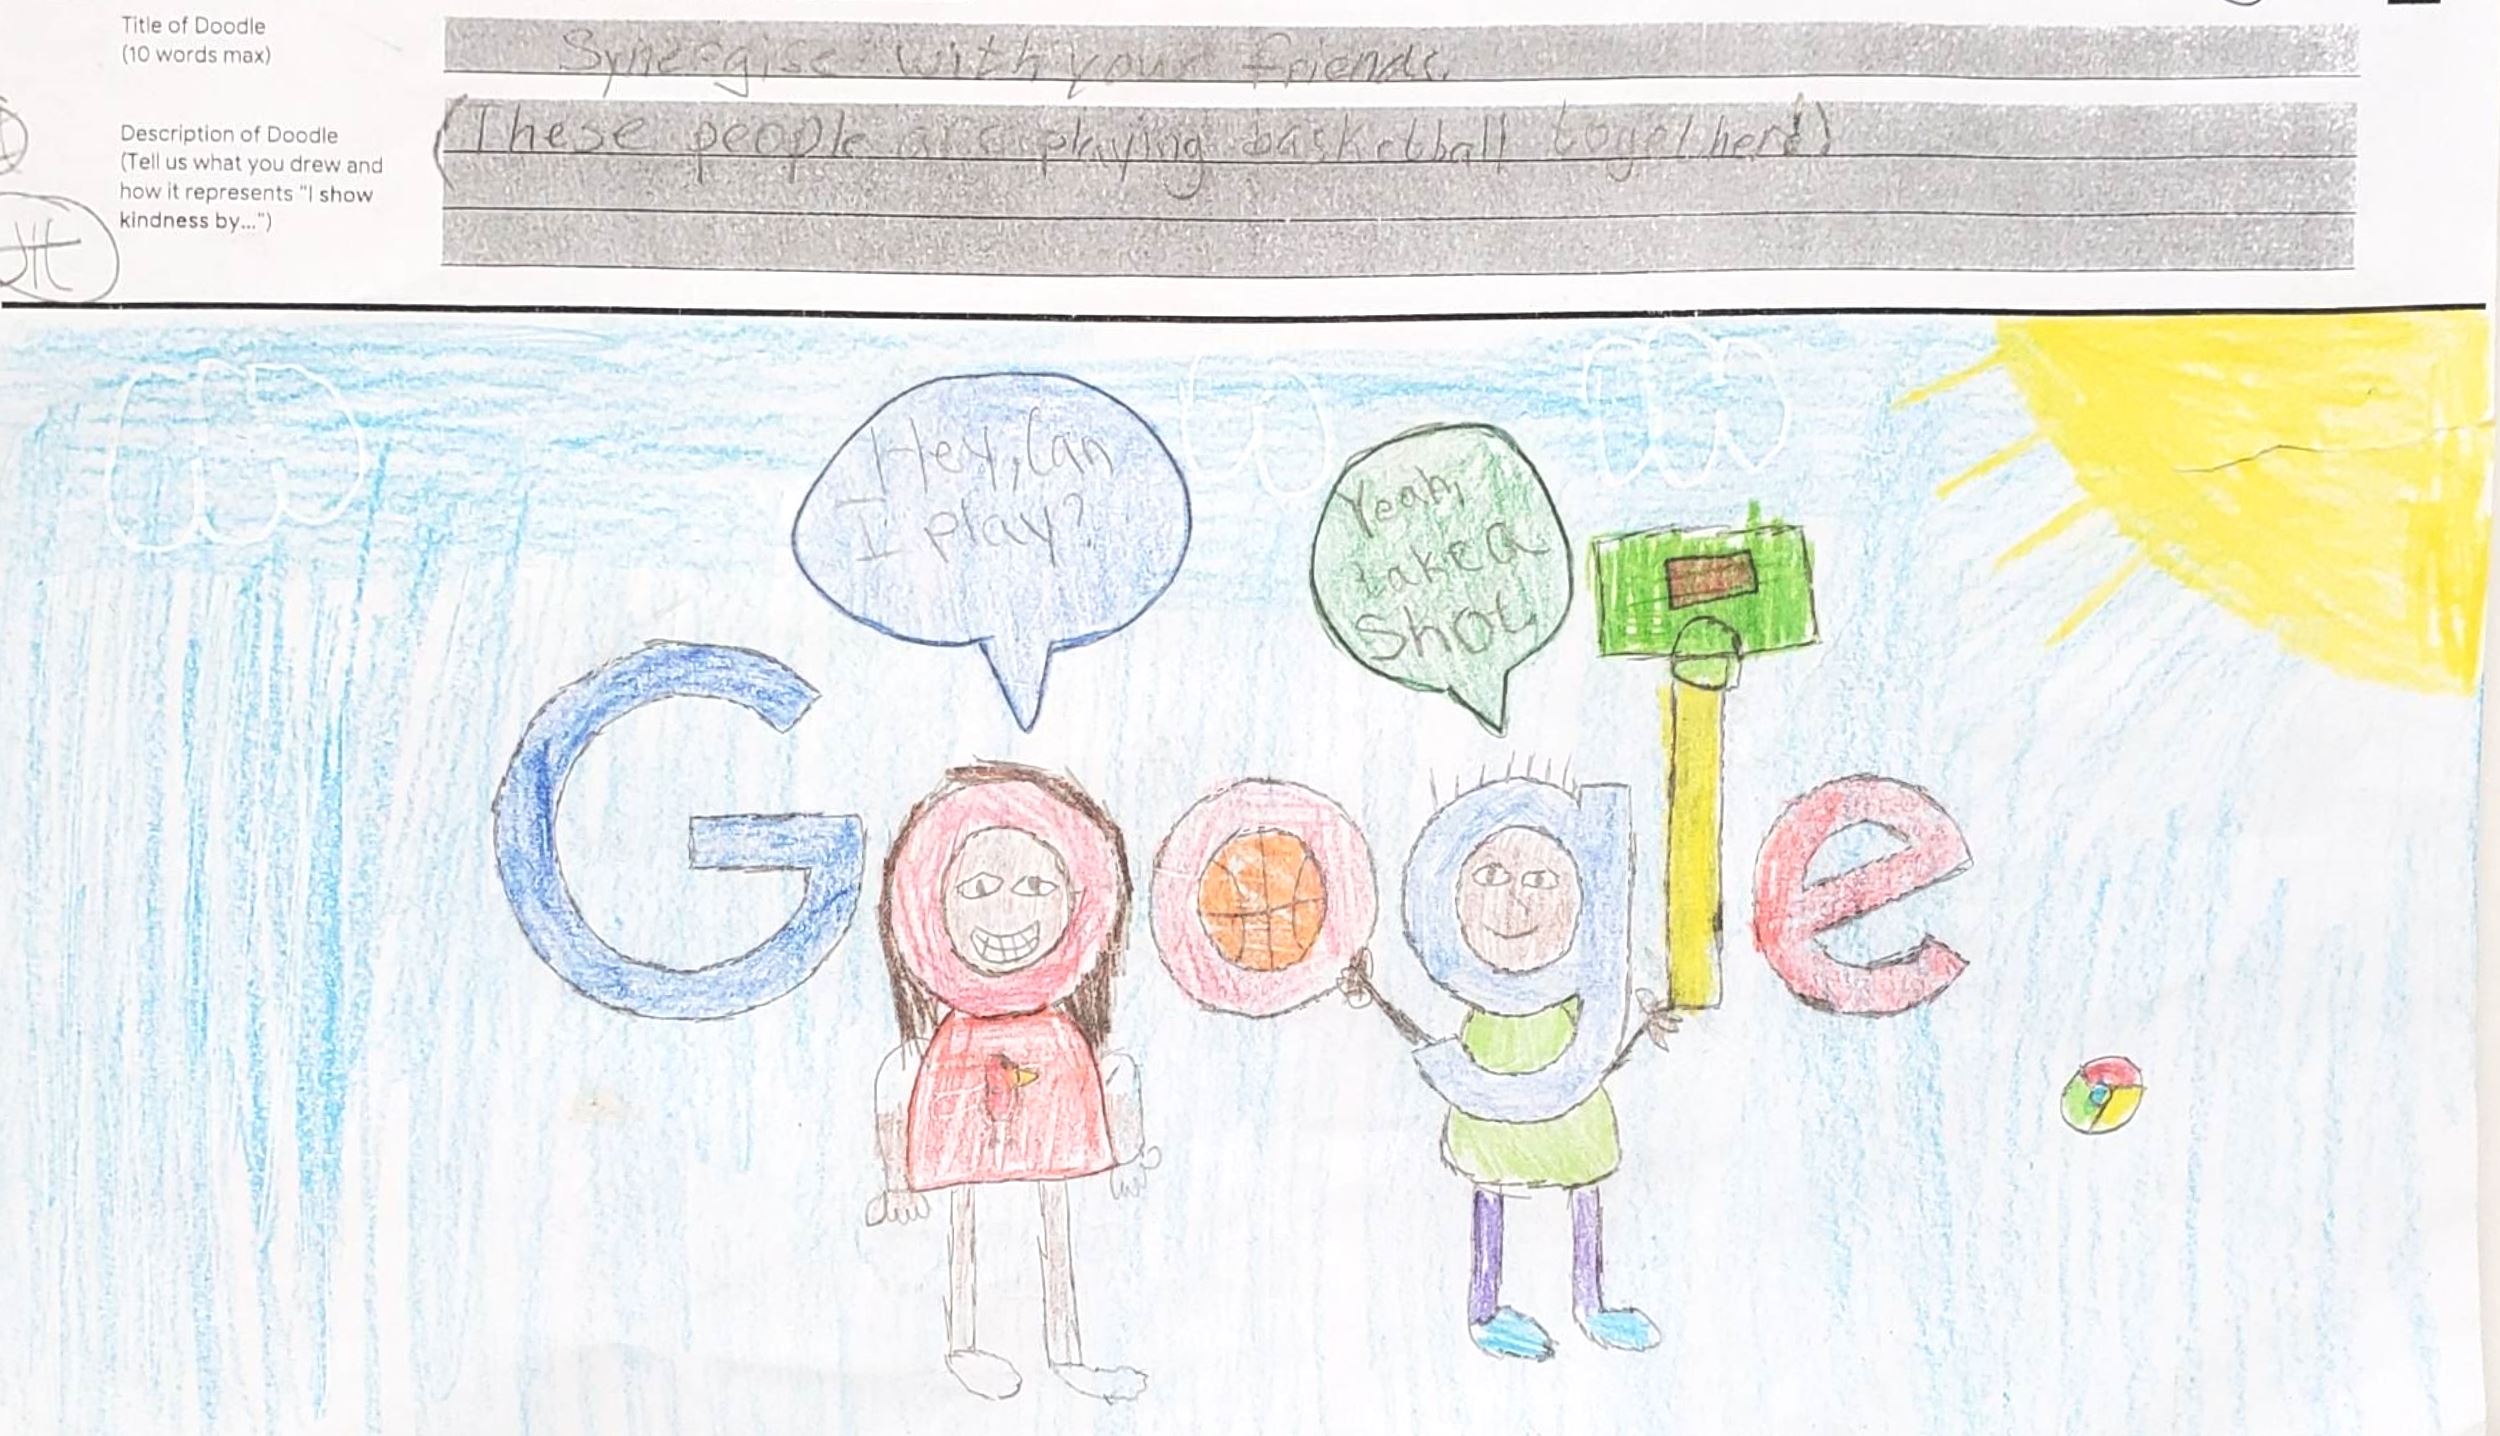 Title of Doodle
(10 words max)
Synergise with your friends.
Description of Doodle
(Tell us what you drew and
how it represents "I show
kindness by...")
(These people are playing basketball together!)
Hey, Can
I play?
Yeah,
take a
Shot.
Google